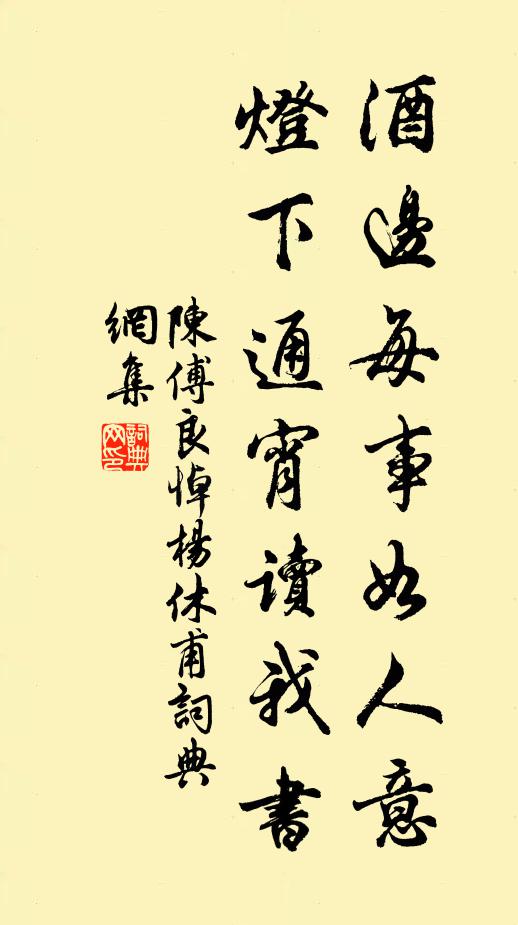 酒邊每事如人意
燈下通宵讀我書
陳傅良悼楊休甫詞典
網集
詞典
网印